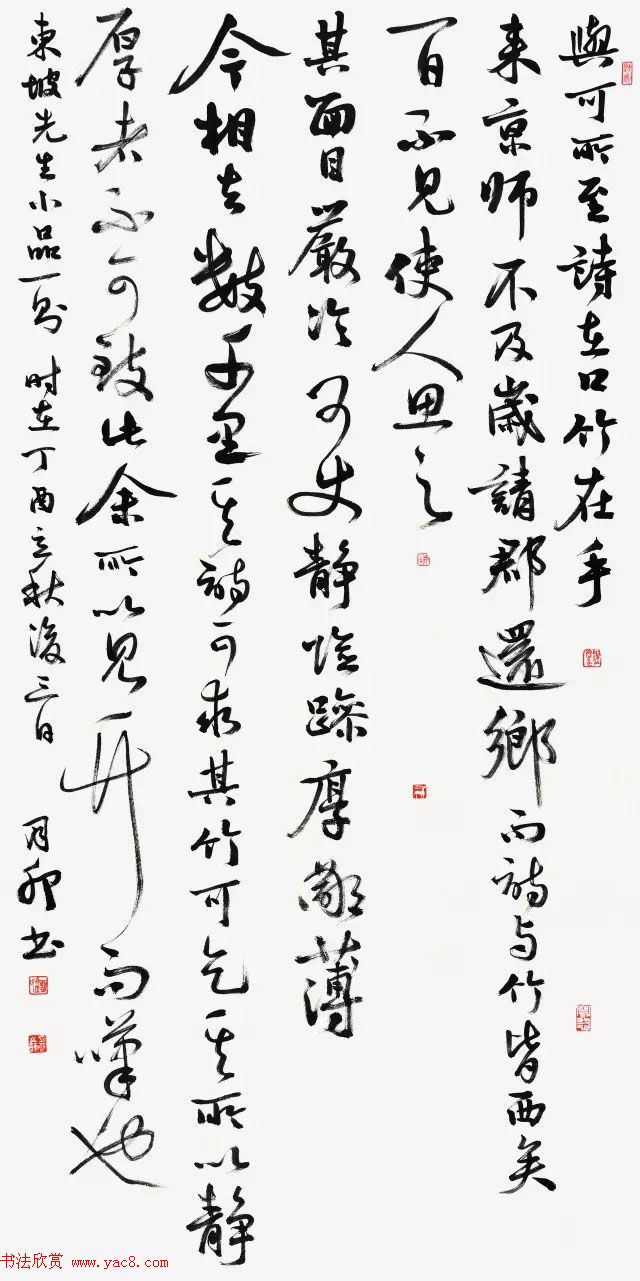 與可所至詩在口竹在手
来京師不及歲請郡還鄉而詩与竹皆西矣
一日不見使人思之
其面目嚴冷可使静險躁厚鄙薄
今相去數千里其詩可求其竹可乞其所以静
厚者不可致此余所以見竹而嘆也
東坡先生小品一則 时在丁酉立秋後三日 書
书法欣赏 www.yac8.com